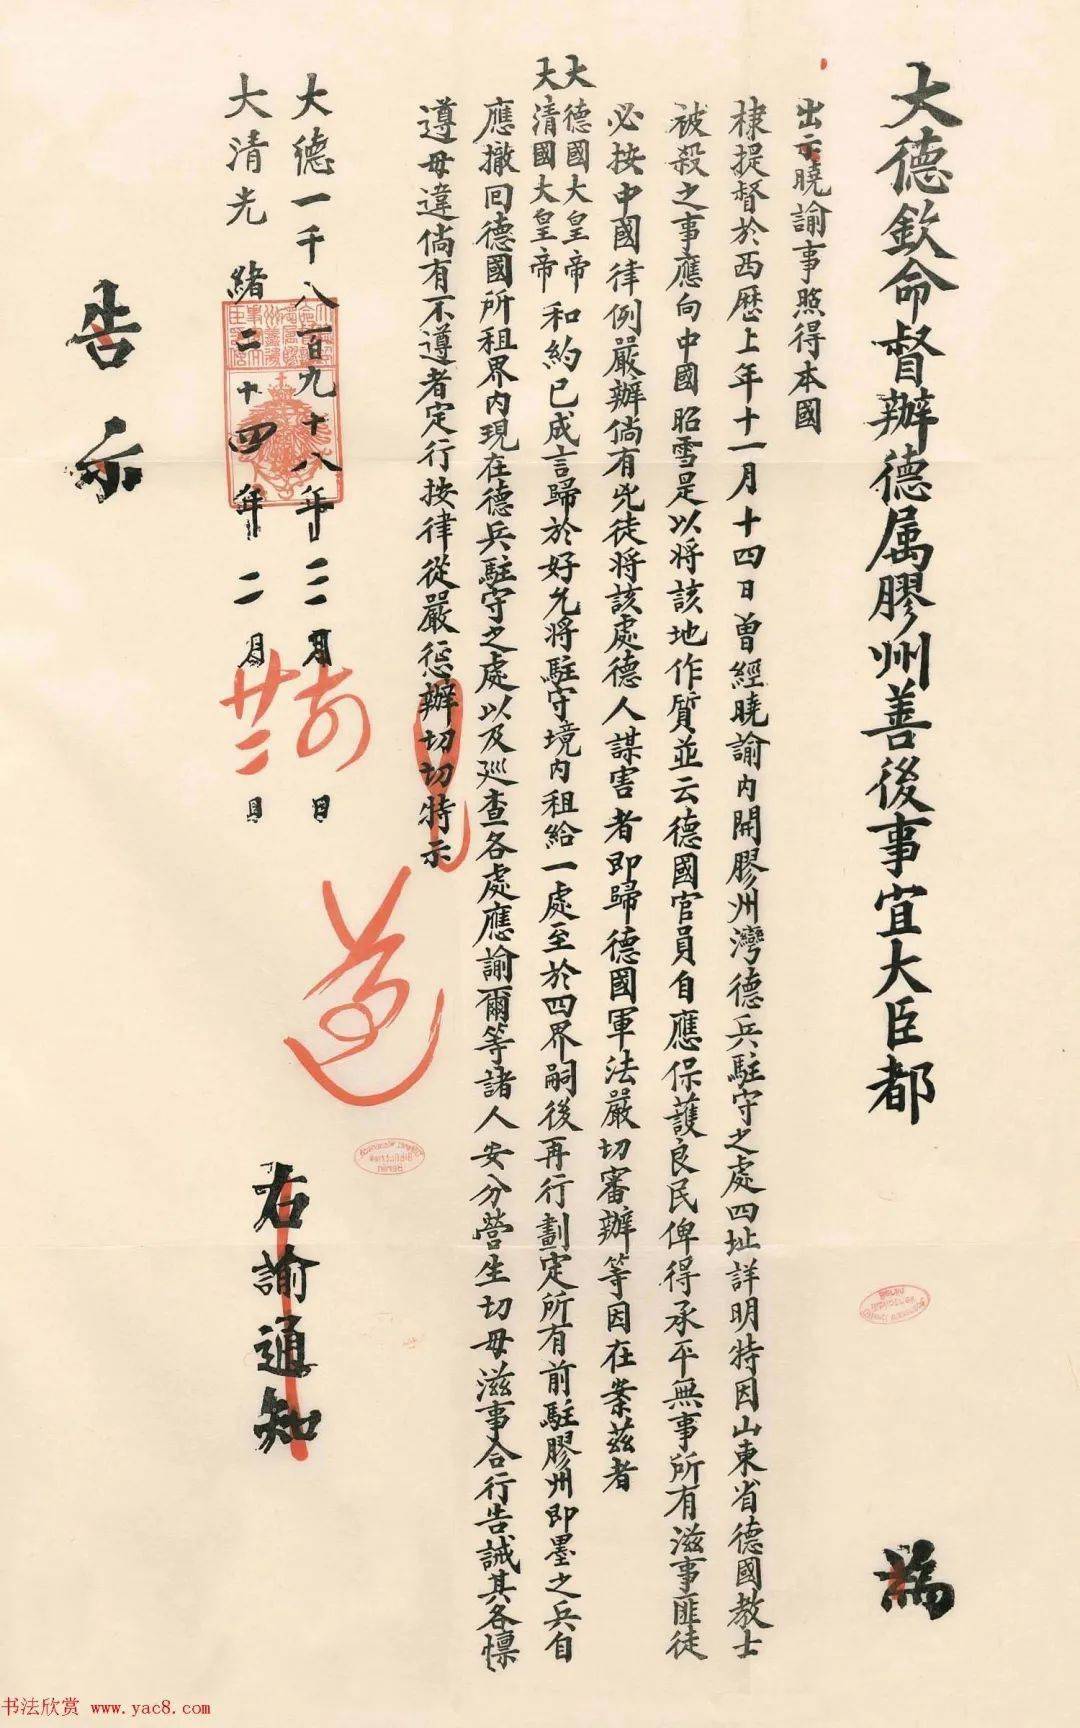 大德欽命督辦德属膠州善後事宜大臣都 為
出示曉諭事照得本國
棣提督於西歷上年十一月十四日曾經曉諭內開膠州灣德兵駐守之處四址詳明特因山東省德國教士
被殺之事應向中國昭雪是以將該地作質並云德國官員自應保護良民俾得承平無事所有滋事匪徒
必按中國律例嚴辦倘有兇徒將該處德人謀害者即歸德國軍法嚴切審辦等因在案茲者
大德國大皇帝
大清國大皇帝
和約已成言歸於好允將駐守境內租給一處至於四界嗣後再行劃定所有前駐膠州即墨之兵自
應撤回德國所租界內現在德兵駐守之處以及巡查各處應諭爾等諸人安分營生切毋滋事合行告誡其各懍
遵毋違倘有不遵者定行按律從嚴懲辦切切特示
右諭通知
大德一千八百九十八年三月 日
大清光緒二十四年二月廿二日
遵
告示
书法欣赏 www.yac8.com